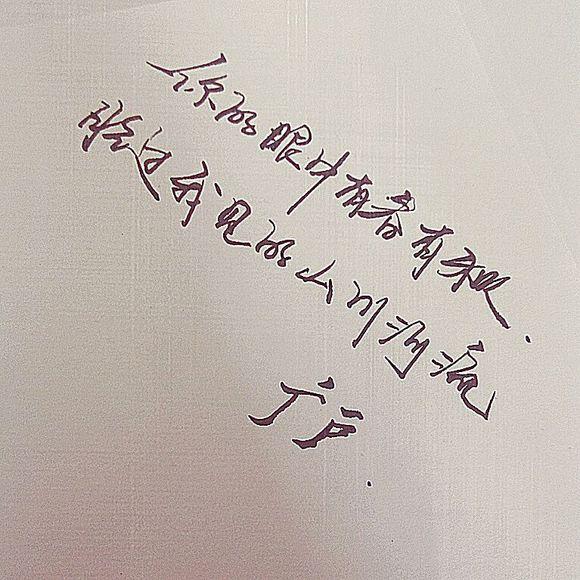 你的眼中有春有秋.
胜过我见的山川河流
广户.